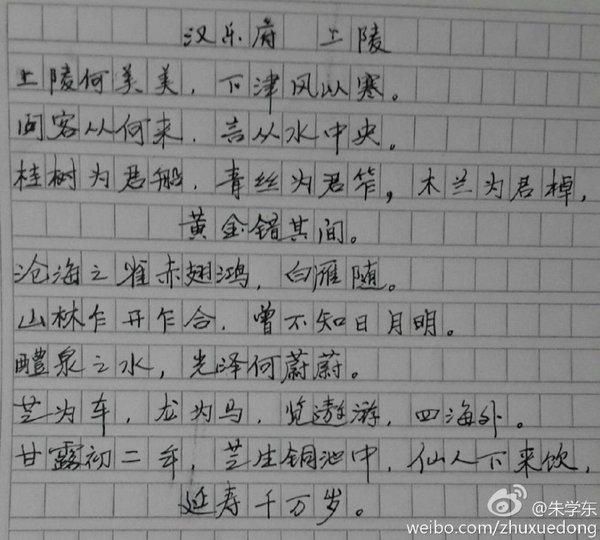 汉乐府 上陵
上陵何美美，下津风以寒。
问客从何来，言从水中央。
桂树为君船，青丝为君笮，木兰为君棹，
黄金错其间。
沧海之雀赤翅鸿，白雁随。
山林乍开乍合，曾不知日月明。
醴泉之水，光泽何蔚蔚。
芝为车，龙为马，览遨游，四海外。
甘露初二年，芝生铜池中，仙人下来饮，
延寿千万岁。
@朱学东
weibo.com/zhuxuedong